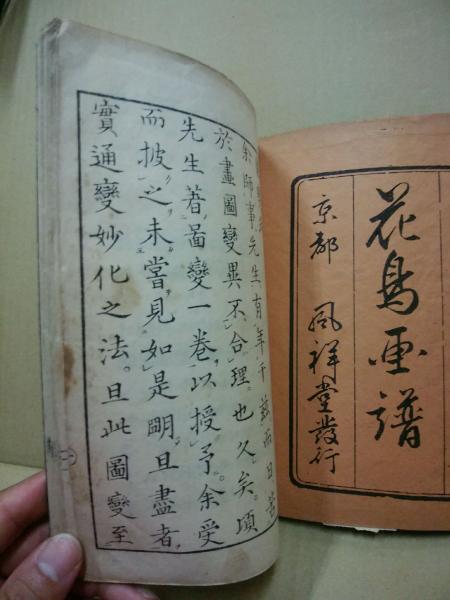 花鳥画譜
京都　風祥堂發行
余師事先生有年于茲而日苦
於畫圖變異不合理也久矣。頃
先生著啚變一卷以授予。余受
而披之未嘗見如是明且盡者
實通變妙化之法。且此圖變至